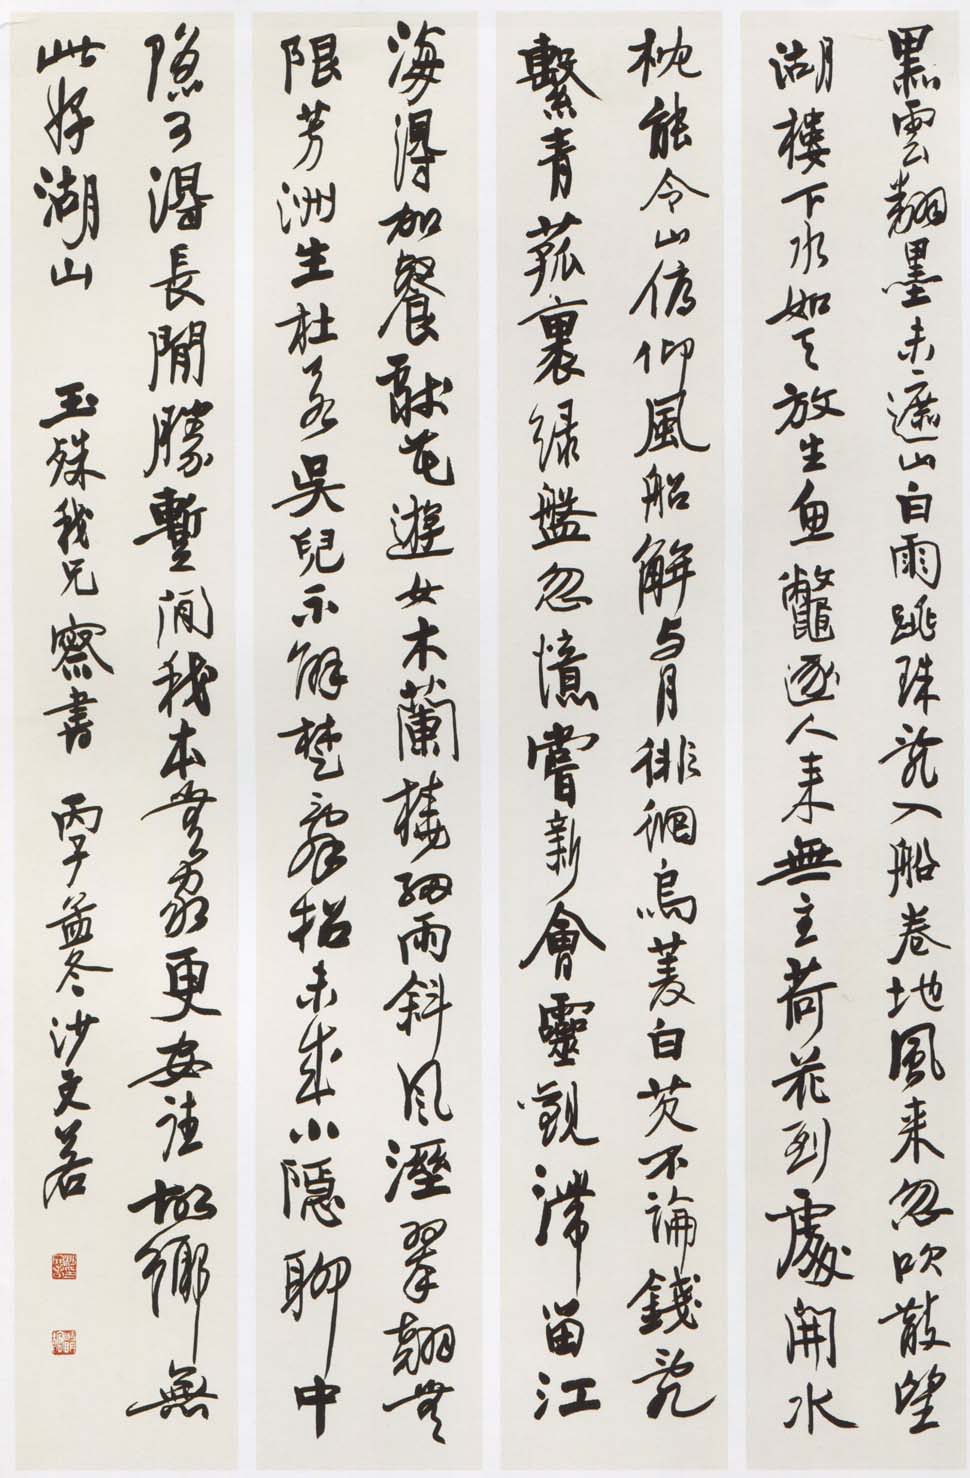 黑雲翻墨未遮山白雨跳珠亂入船卷地風来忽吹散望
湖樓下水如天放生魚鼈逐人来無主荷花到處開水
枕能令山俯仰風船解与月徘徊烏菱白芡不論錢亂
繫青菰裹绿盤忽憶嘗新會靈觀滯留江
海得加餐獻花遊女木蘭橈細雨斜風溼翠翹無
限芳洲生杜若吳兒不解楚辭招未成小隱聊中
隱可得長閒勝暫閒我本無家更安往故鄉無
此好湖山 玉殊我兄察書 丙子孟冬沙文若